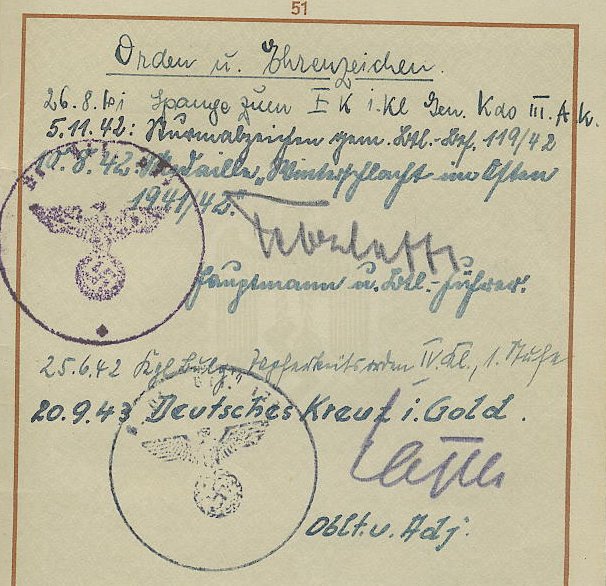 51
Orden u. Ehrenzeichen.
26.8.41 Spange zum E K i. Kl Gen. Kdo III. A. K.
5.11.42: Sturmabzeichen gem. Btl.-Bef. 119/42
.8.42: Medaille „Winterschlacht im Osten
1941/42."
Hauptmann u. Btl.-Führer.
25.6.42 Kgl Bulg. Tapferkeitsorden IV Kl., 1. Stufe
20.9.43 Deutsches Kreuz i. Gold.
Oblt. u. Adj.